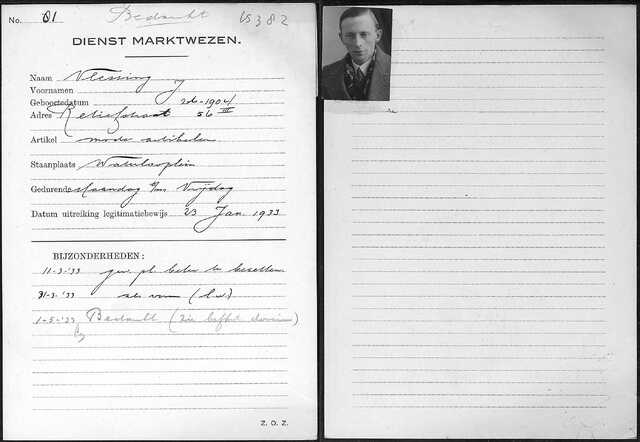 No. 81 Bedankt 15382
DIENST MARKTWEZEN.
Naam Vlessing
Voornamen J
Geboortedatum 1904
Adres Retiefstraat 56 III
Artikel mode artikelen
Staanplaats Waterlooplein
Gedurende Maandag t/m Vrijdag
Datum uitreiking legitimatiebewijs 23 Jan. 1933
BIJZONDERHEDEN:
11-3-'33 gew. pl. beter te bezetten
31-3-'33
1-5-'33 Bedankt (zie
Z. O. Z.